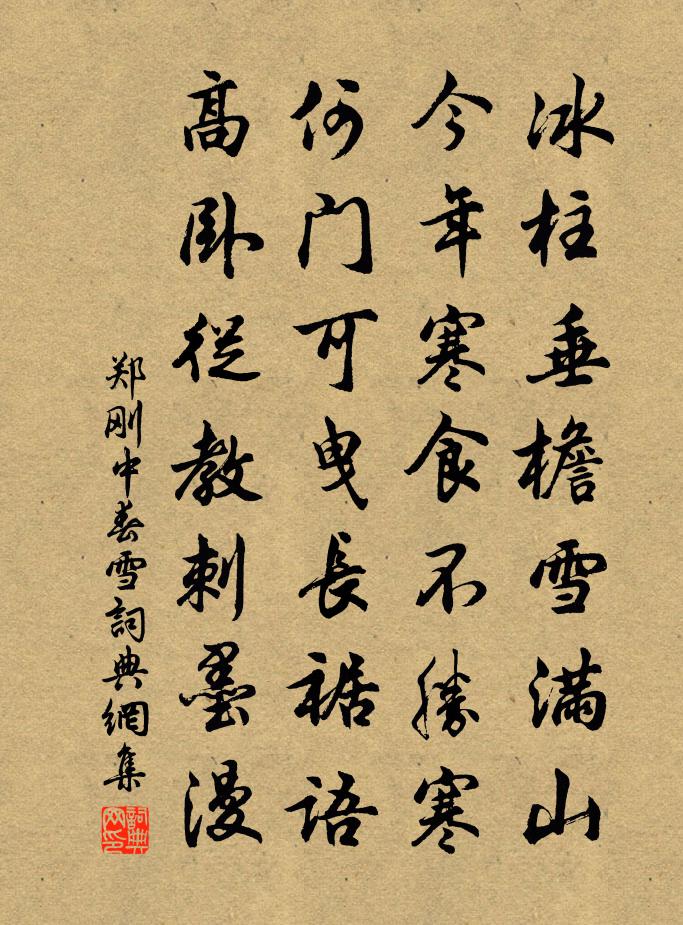 冰柱垂檐雪满山
今年寒食不勝寒
何门可曳長裾语
高卧從教刺墨漫
郑刚中春雪詞典網集
詞典网印